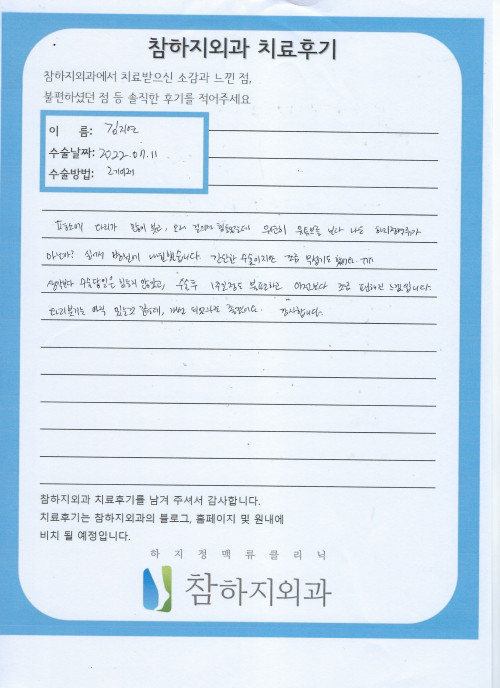 참하지외과 치료후기
참하지외과에서 치료받으신 소감과 느낀 점,
불편하셨던 점 등 솔직한 후기를 적어주세요
이 름: 김지연
수술날짜: 2022.07.11
수술방법: 레이저
평소에 다리가 많이 붓고, 오래 걷기가 힘들었는데 우연히 유튜브를 보다 나도 하지정맥류가
아닌가? 싶어서 병원에 내원했습니다. 간단한 수술이지만 조금 무섭기도 했어요.
생각보다 수술당일은 힘들지 않았고, 수술후 1주일정도 불편하고 이전보다 조금 편해진 느낌입니다.
다리붓기는 아직 있는것 같은데, 개선 되었으면 좋겠어요. 감사합니다.
참하지외과 치료후기를 남겨 주셔서 감사합니다.
치료후기는 참하지외과의 블로그, 홈페이지 및 원내에
비치 될 예정입니다.
하지정맥류클리닉
참하지외과